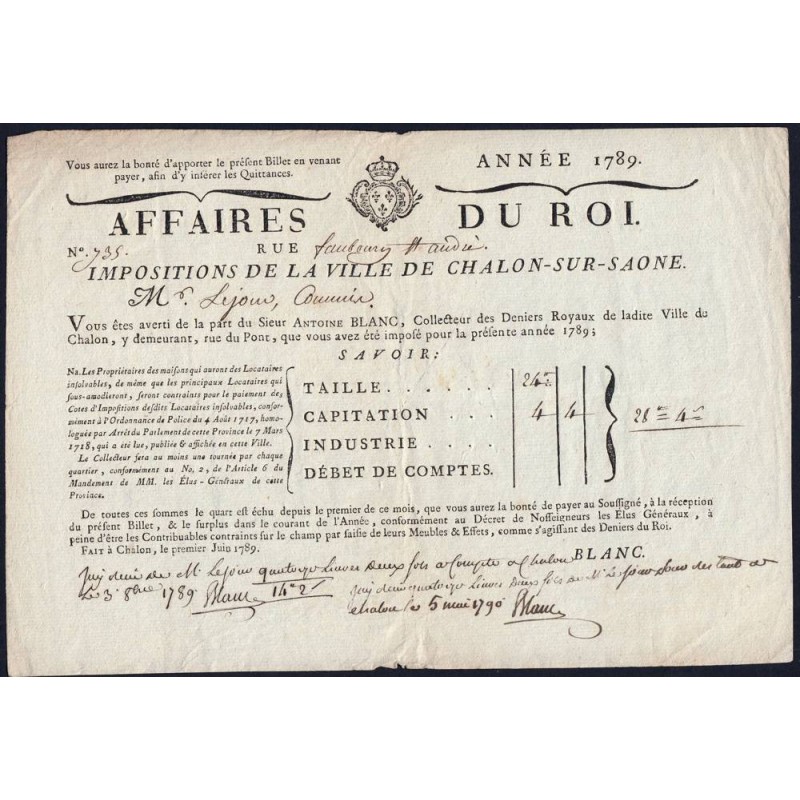 Vous aurez la bonté d'apporter le préſent Billet en venant
payer, afin d'y inſérer les Quittances.
ANNÉE 1789.
AFFAIRES DU ROI.
N°. 735. RUE faubourg St andré.
IMPOSITIONS DE LA VILLE DE CHALON-SUR-SAONE.
Mr. Lejour, Commis.
Vous êtes averti de la part du Sieur ANTOINE BLANC, Collecteur des Deniers Royaux de ladite Ville de
Chalon, y demeurant, rue du Pont, que vous avez été impoſé pour la préſente année 1789;
SAVOIR:
Na. Les Propriétaires des maiſons qui auront des Locataires
inſolvables, de même que les principaux Locataires qui
ſous-amodieront, ſeront contraints pour le paiement des
Cotes d'Impoſitions deſdits Locataires inſolvables, confor-
mément à l'Ordonnance de Police du 4 Août 1717, homo-
loguée par Arrêt du Parlement de cette Province le 7 Mars
1718, qui a été lue, publiée & affichée en cette Ville.
Le Collecteur ſera au moins une tournée par chaque
quartier, conformément au No. 2, de l'Article 6 du
Mandement de MM. les Élus-Généraux de cette
Province.
TAILLE . . . . . . 24
CAPITATION . . . . 4 4
INDUSTRIE . . . . .
DÉBET DE COMPTES.
28 4
De toutes ces ſommes le quart eſt échu depuis le premier de ce mois, que vous aurez la bonté de payer au Souſſigné, à la réception
du préſent Billet, & le ſurplus dans le courant de l'Année, conformément au Décret de Noſſeigneurs les Elus Généraux, à
peine d'être les Contribuables contraints ſur le champ par ſaiſie de leurs Meubles & Effets, comme s'agiſſant des Deniers du Roi.
FAIT à Châlon, le premier Juin 1789.
BLANC.
de Mr Lejour quatorze Livres Deux ſols a Compte a Chalon
Le 3e 8bre 1789 Blanc 14 2
quatorze Livres Deux ſols de Mr Lejour
chalon le 5 mai 1790 Blanc